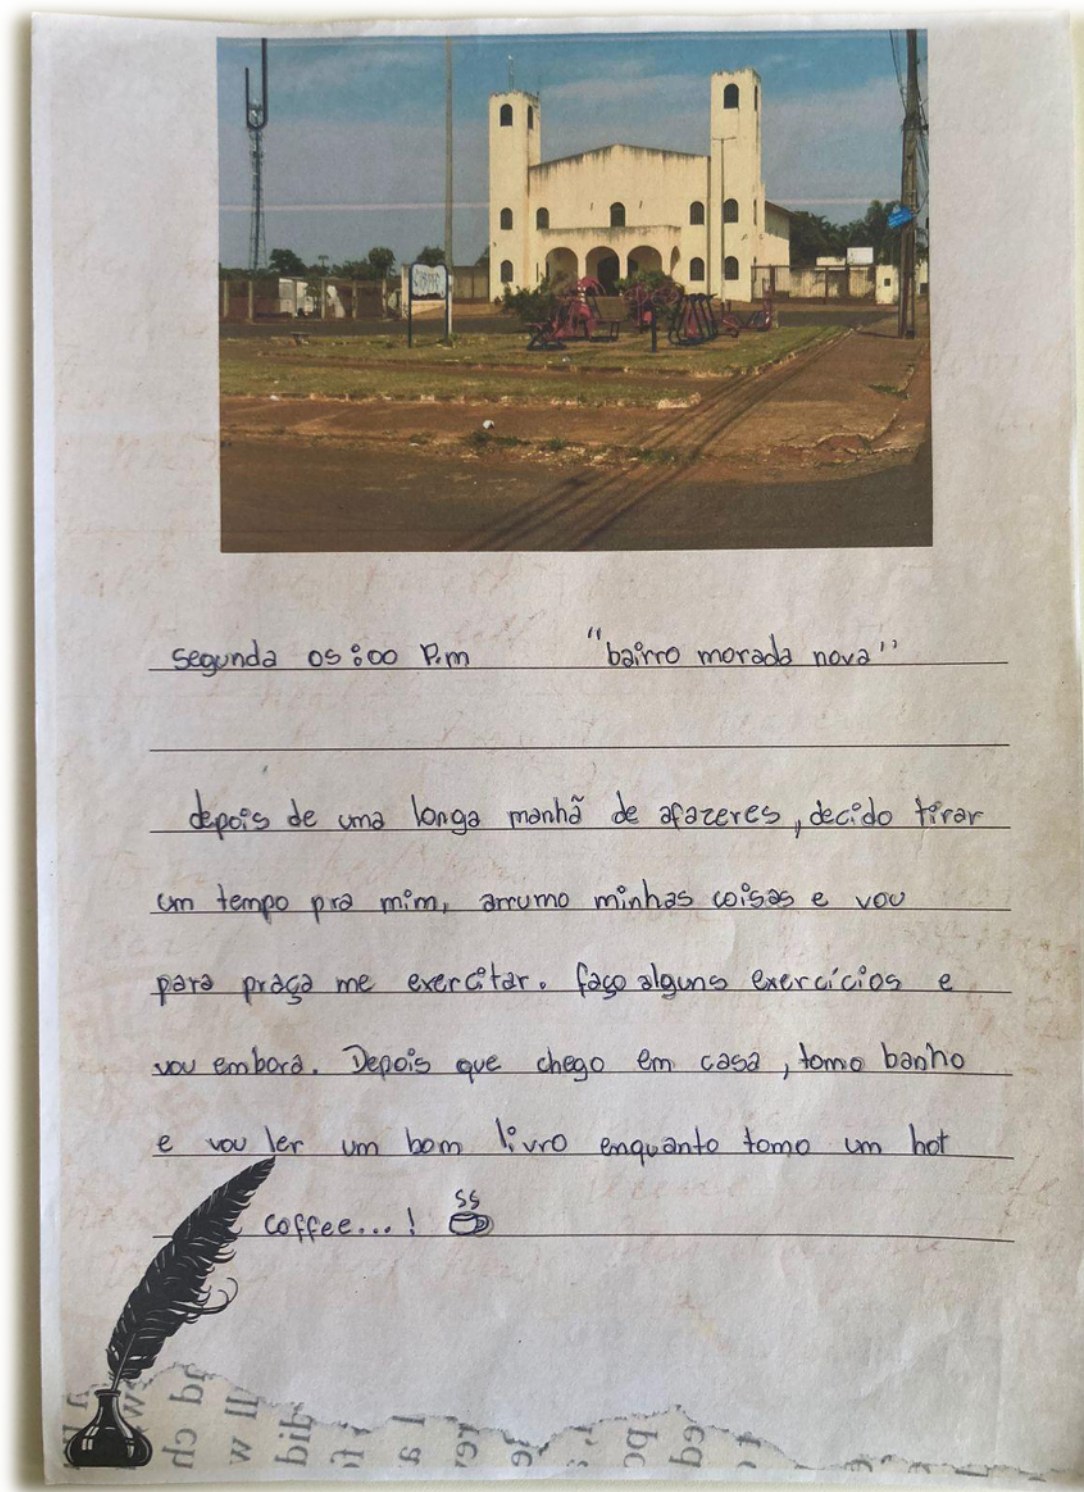 segunda 05:00 P.m "bairro morada nova"
depois de uma longa manhã de afazeres, decido tirar
um tempo pra mim, arrumo minhas coisas e vou
para praça me exercitar. faço alguns exercícios e
vou embora. Depois que chego em casa, tomo banho
e vou ler um bom livro enquanto tomo um hot
coffee...!